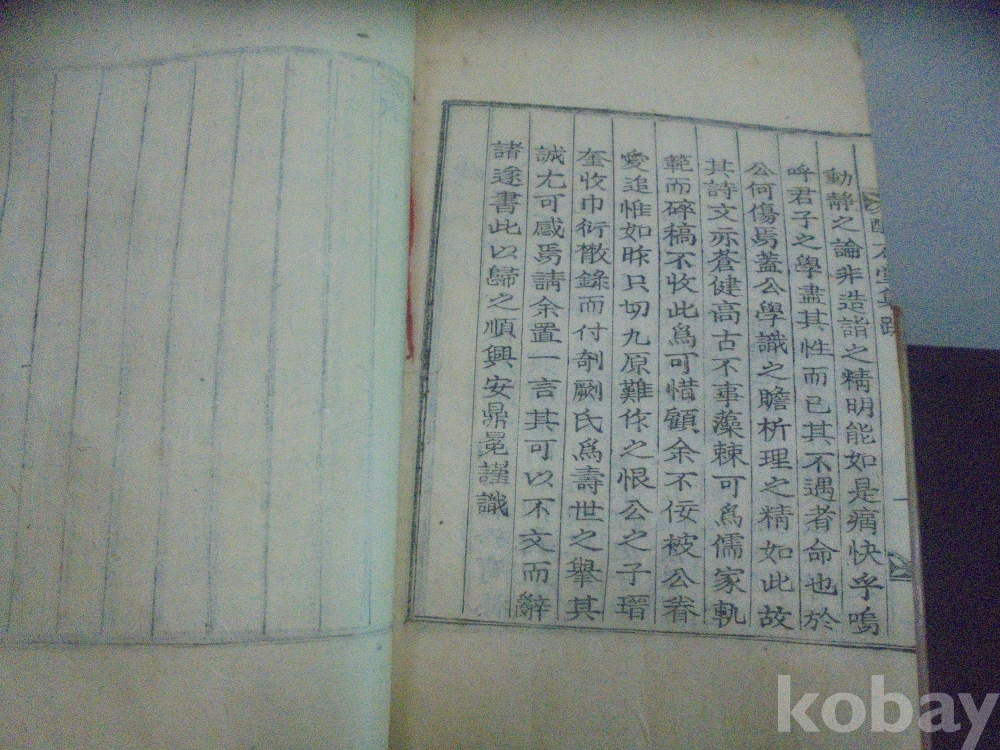 動靜之論非造詣之精明能如是痛快乎嗚
呼君子之學盡其性而已其不遇者命也於
公何傷焉蓋公學識之贍析理之精如此故
其詩文亦蒼健高古不事藻棘可爲儒家軌
範而碎稿不收此爲可惜顧余不佞被公眷
愛追惟如昨只切九原難作之恨公之子瑨
奎收巾衍散錄而付剞劂氏爲壽世之擧其
誠尤可感焉請余置一言其可以不文而辭
諸遂書此以歸之順興安鼎冕謹識
kobay